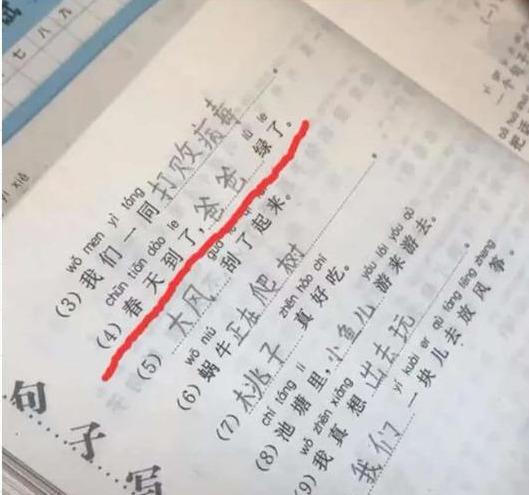 七 八 九
wǒ men yì tóng
(3) 我们一同打败病毒。
chūn tiān dào le lǜ le
(4) 春天到了,爸爸绿了。
guā le qǐ lái
(5) 大风刮了起来。
wō niú
(6) 蜗牛正在爬树。
zhēn hǎo chī
(7) 桃子真好吃。
chí táng lǐ yóu lái yóu qù
(8) 池塘里,小鱼儿游来游去。
wǒ zhēn xiǎng
(9) 我真想出去玩。
yí kuài er qù fàng fēng zheng
我们一块儿去放风筝。
句子写